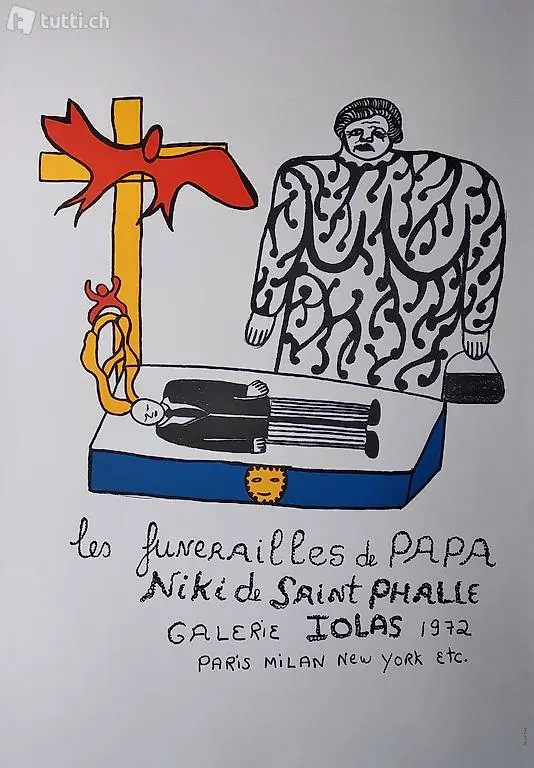 tutti.ch
les funerailles de PAPA
Niki de SAINT PHALLE
GALERIE IOLAS 1972
PARIS MILAN NEW YORK ETC.